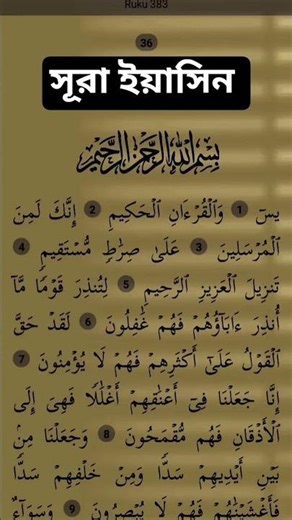 Ruku 383
36
সূরা ইয়াসিন
بِسْمِ اللَّهِ الرَّحْمَٰنِ الرَّحِيمِ
يسٓ 1 وَالْقُرْءَانِ الْحَكِيمِ 2 إِنَّكَ لَمِنَ
الْمُرْسَلِينَ 3 عَلَىٰ صِرَٰطٍ مُّسْتَقِيمٍ 4
تَنزِيلَ الْعَزِيزِ الرَّحِيمِ 5 لِتُنذِرَ قَوْمًا مَّآ
أُنذِرَ ءَابَآؤُهُمْ فَهُمْ غَٰفِلُونَ 6 لَقَدْ حَقَّ
الْقَوْلُ عَلَىٰٓ أَكْثَرِهِمْ فَهُمْ لَا يُؤْمِنُونَ 7
إِنَّا جَعَلْنَا فِىٓ أَعْنَٰقِهِمْ أَغْلَٰلًا فَهِىَ إِلَى
الْأَذْقَانِ فَهُم مُّقْمَحُونَ 8 وَجَعَلْنَا مِنۢ
بَيْنِ أَيْدِيهِمْ سَدًّا وَمِنْ خَلْفِهِمْ سَدًّا
فَأَغْشَيْنَٰهُمْ فَهُمْ لَا يُبْصِرُونَ 9 وَسَوَآءٌ